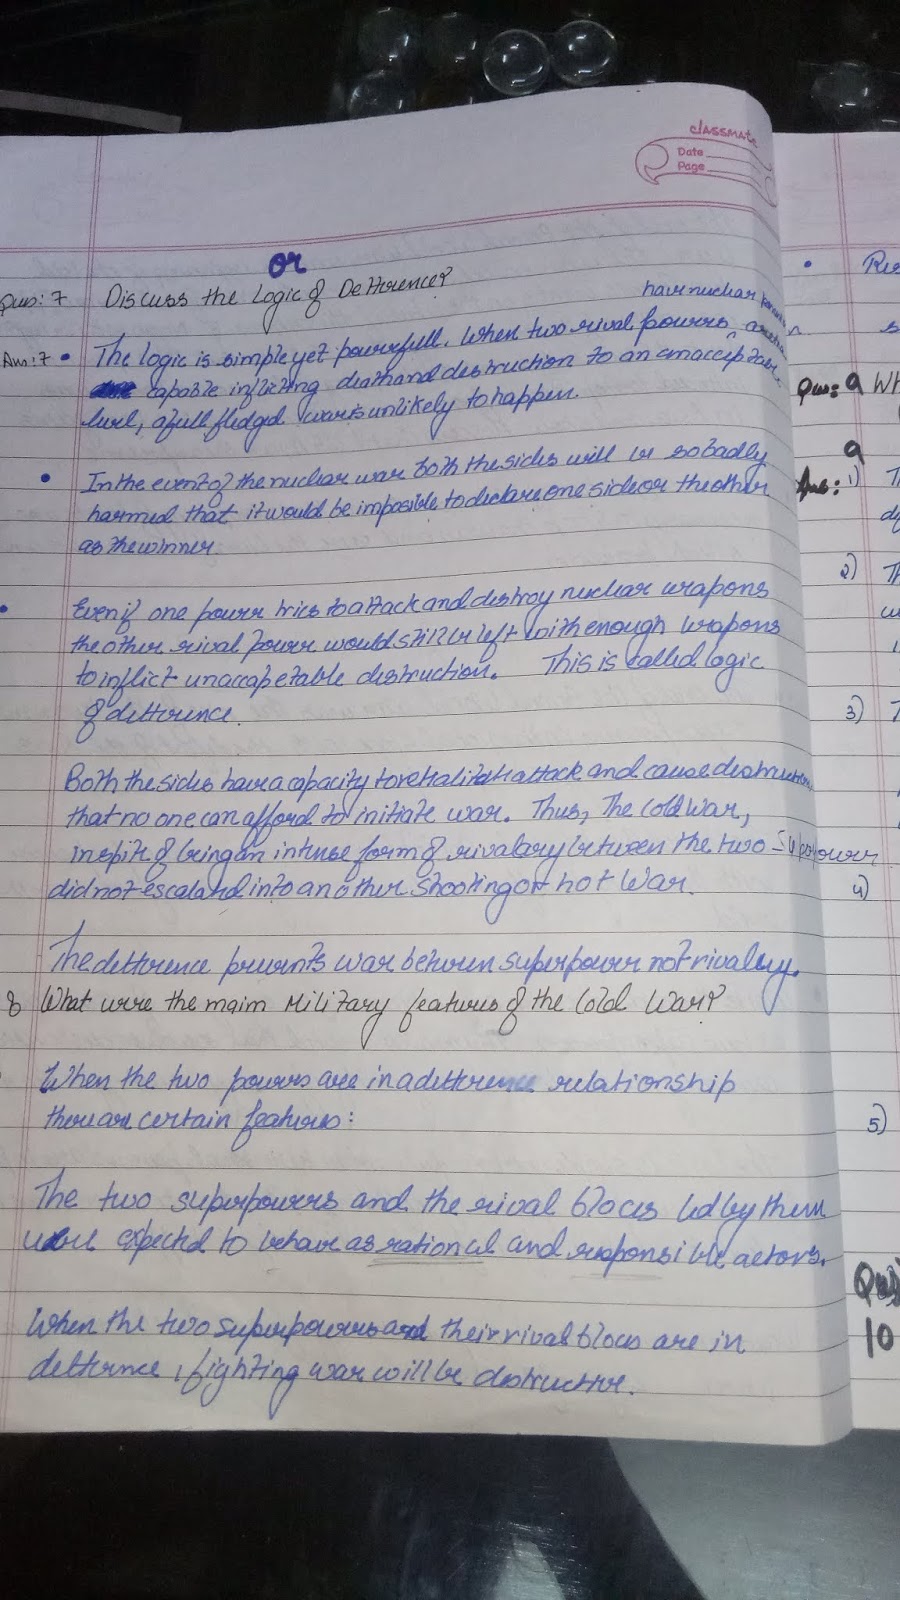 classmate
Date
Page
or
Ques: 7 Discuss the Logic of Detterence?
have nuclear
Ans: 7 • The logic is simple yet powerfull. When two rival powers
capable inflicting death and destruction to an
level, a full fledged war is unlikely to happen.
• In the event of the nuclear war both the sides will be so badly
harmed that it would be imposible to declare one side or the other
as the winner.
• Even if one power tries to attack and destroy nuclear weapons
the other rival power would still be left with enough weapons
to inflict unaccapetable destruction. This is called logic
of detterence.
Both the sides have a capacity to attack and cause
that no one can afford to initiate war. Thus, The Cold War,
Inspite of being an intense form of rivalary between the two
did not into another shooting or hot War.
The detterence prevents war between superpower not rivalary.
8 What were the maim Military features of the Cold War?
When the two powers are in a detterence relationship
there are certain features:
The two superpowers and the rival blocs led by them
were expected to behave as rational and responsible actors.
When the two superpowers and their rival blocs are in
detternce, fighting war will be destructive.
•
Ques: 9 Wh
9
Ans: 1)
2) Th
3) T
4)
5)
Ques
10